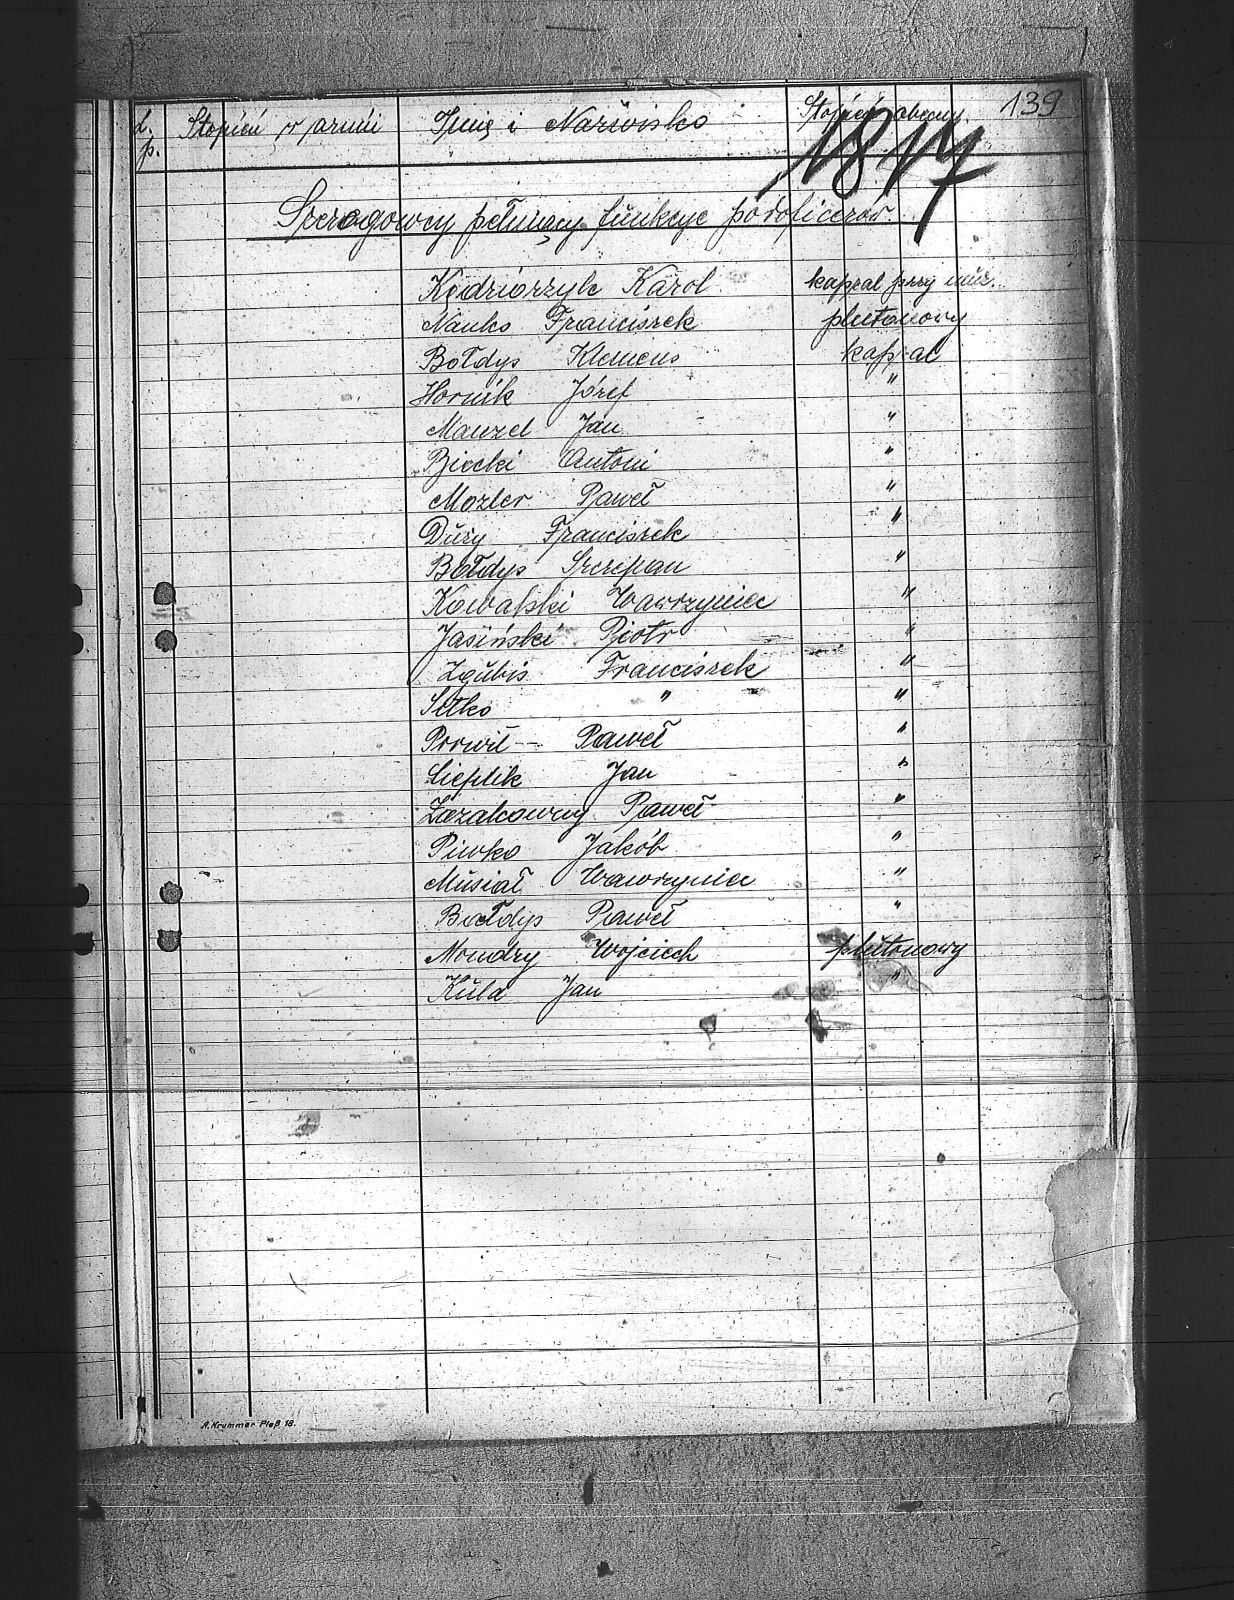 139
L. p. Stopień w armii Imię i Nazwisko Stopień obecny.
1817
Szeregowcy pełniący funkcye podoficerów.
Kędziorzyk Karol kapral przy muz.
Nauko Franciszek plutonowy
Bołdys Klemens kapral
Hornik Józef "
Manzel Jan "
Biecki Antoni "
Mozler Paweł "
Duży Franciszek "
Bałdys Szczepan "
Kowalski Wawrzyniec "
Jasiński Piotr "
Zgubis Franciszek "
Sitko " "
Porwit Paweł "
Cieplik Jan "
Paweł "
Piwko Jakób "
Musiał Wawrzyniec "
Bałdys Paweł "
Mondry Wojciech plutonowy
Kula Jan "
A. Krummer Pleß 18.